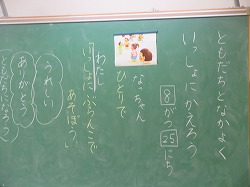 ともだちとなかよく
いっしょにかえろう
8がつ25にち
なっちゃん
ひとりで
わたし
いっしょにぶらんこで
あそぼう。
うれしい
ありがとう
ともだちになろう